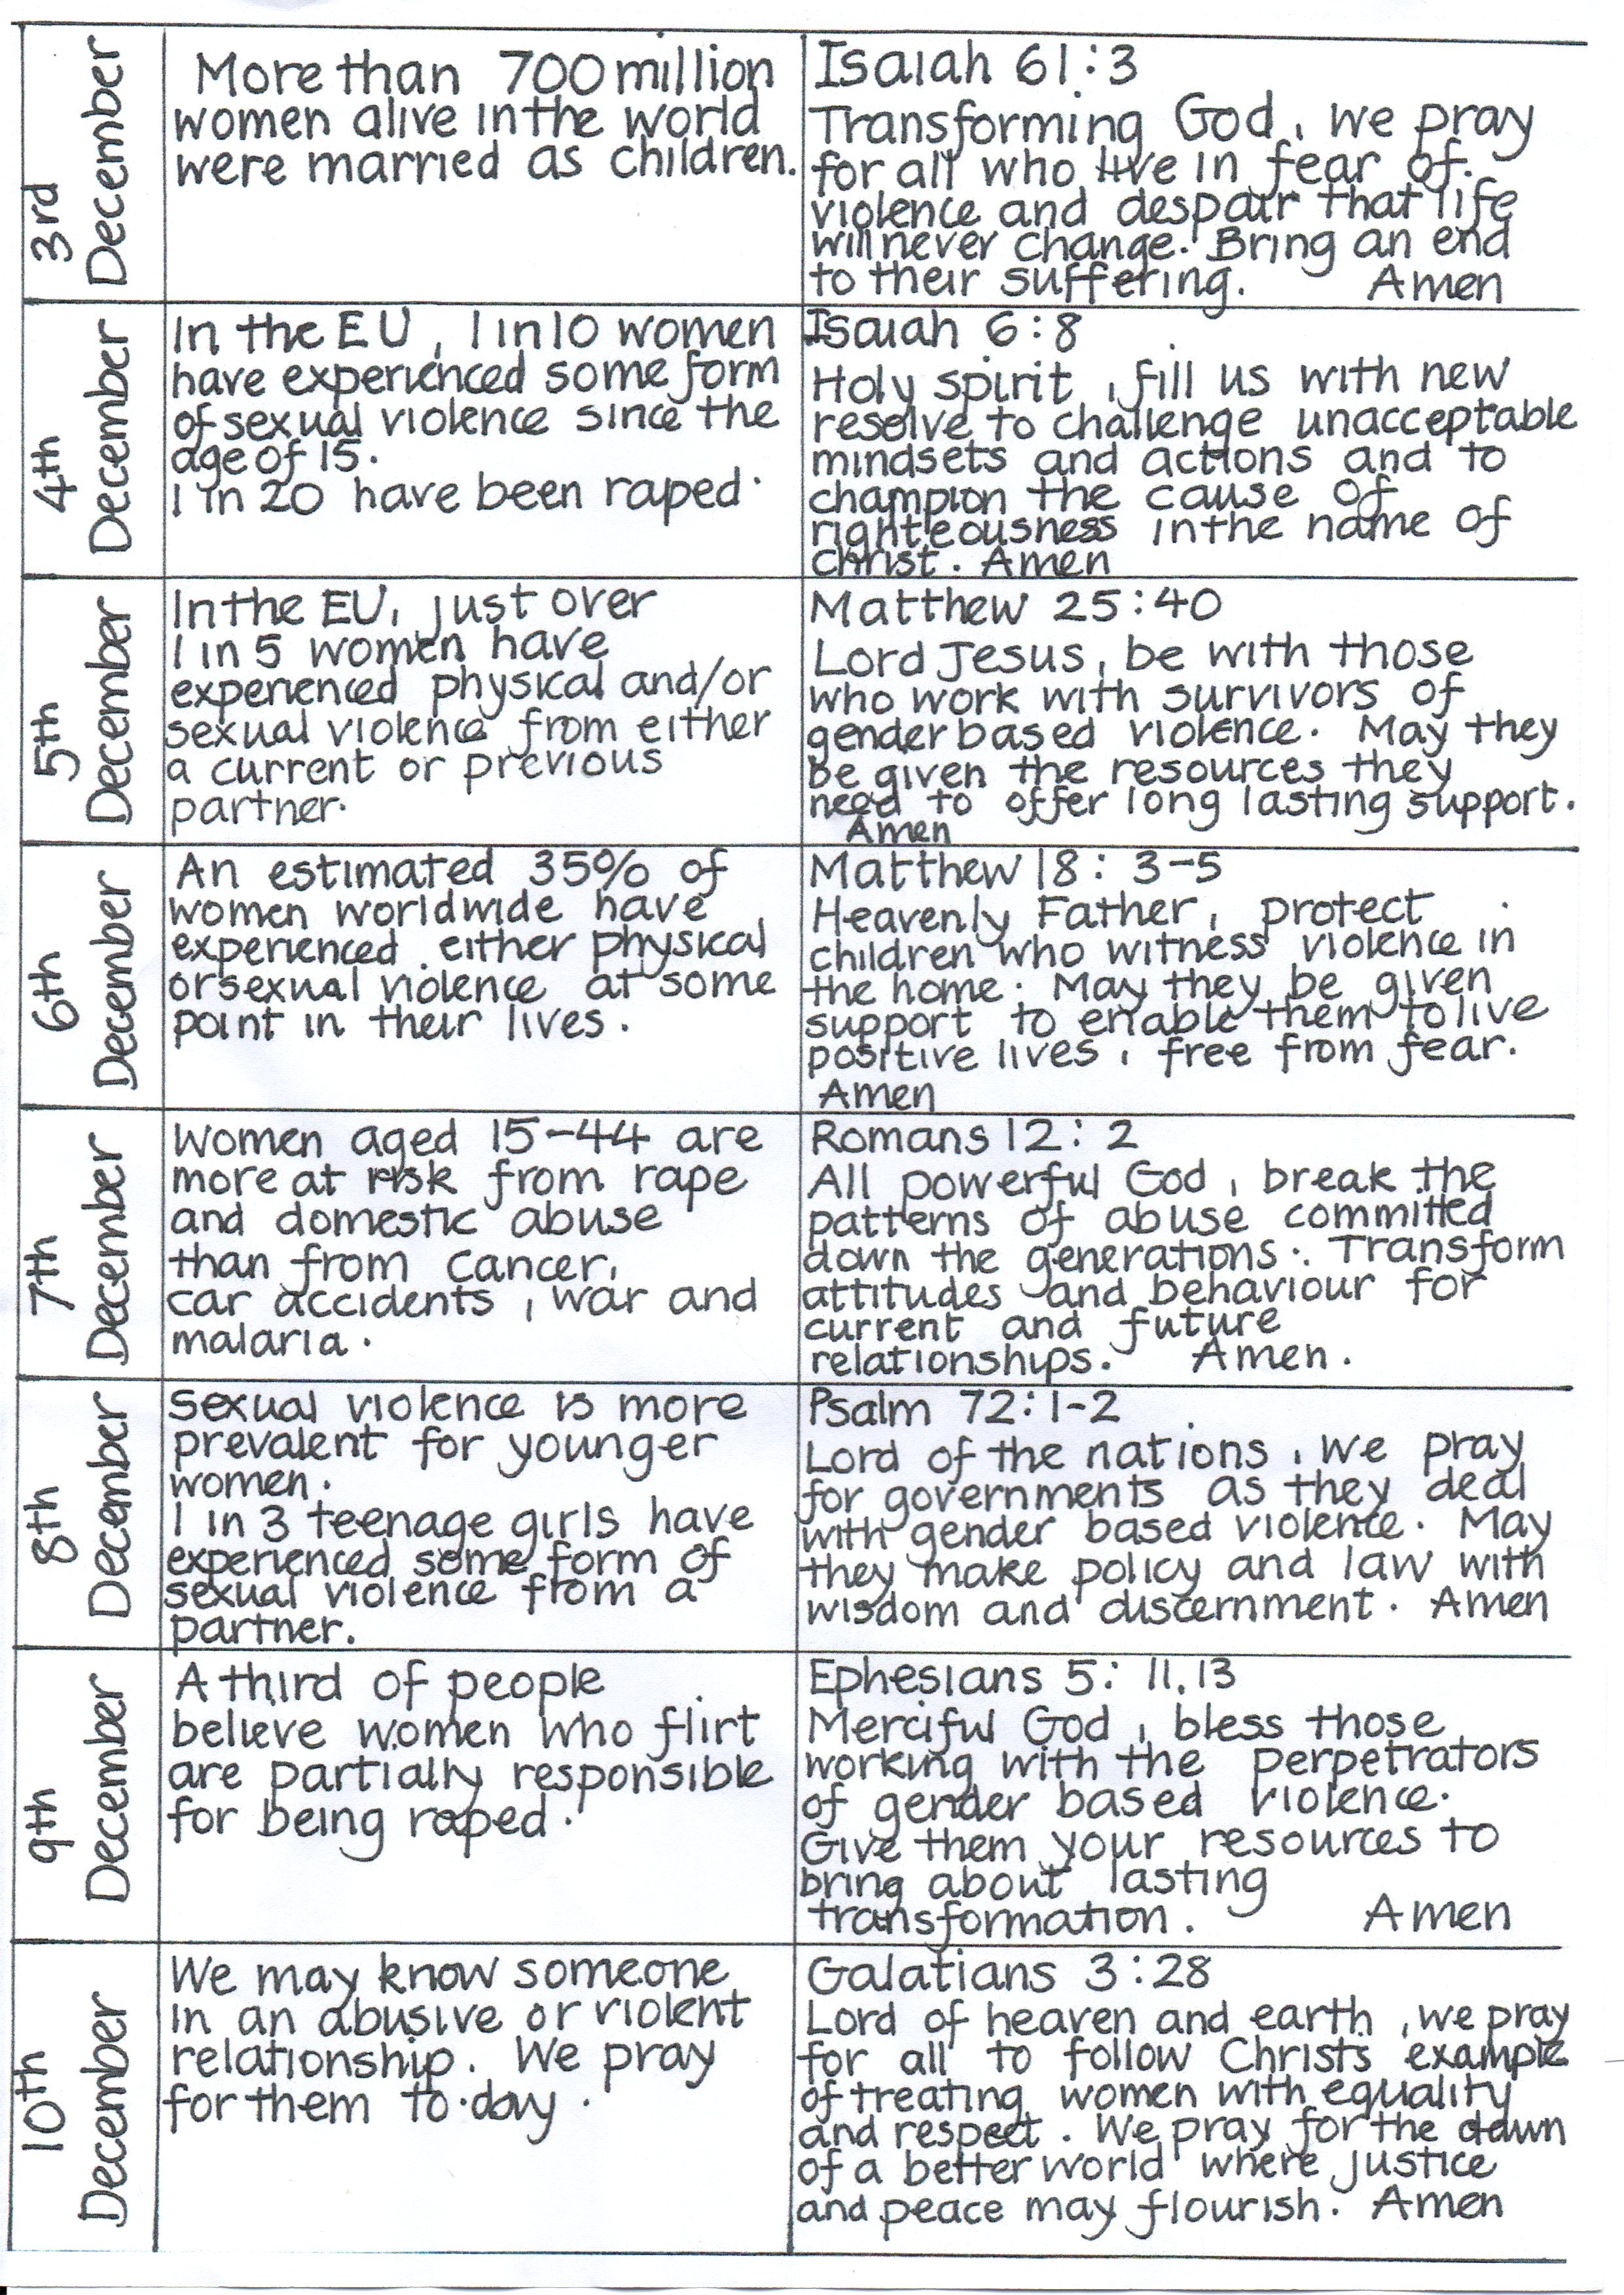 3rd
December
More than 700 million
women alive in the world
were married as children.
Isaiah 61:3
Transforming God, we pray
for all who live in fear of
violence and despair that life
will never change. Bring an end
to their suffering. Amen
4th
December
In the EU, 1 in 10 women
have experienced some form
of sexual violence since the
age of 15.
1 in 20 have been raped.
Isaiah 6:8
Holy spirit, fill us with new
resolve to challenge unacceptable
mindsets and actions and to
champion the cause of
righteousness in the name of
Christ. Amen
5th
December
In the EU, just over
1 in 5 women have
experienced physical and/or
sexual violence from either
a current or previous
partner.
Matthew 25:40
Lord Jesus, be with those
who work with survivors of
gender based violence. May they
be given the resources they
need to offer long lasting support.
Amen
6th
December
An estimated 35% of
women worldwide have
experienced either physical
or sexual violence at some
point in their lives.
Matthew 18: 3-5
Heavenly Father, protect
children who witness violence in
the home. May they be given
support to enable them to live
positive lives, free from fear.
Amen
7th
December
Women aged 15-44 are
more at risk from rape
and domestic abuse
than from cancer,
car accidents, war and
malaria.
Romans 12: 2
All powerful God, break the
patterns of abuse committed
down the generations. Transform
attitudes and behaviour for
current and future
relationships. Amen.
8th
December
Sexual violence is more
prevalent for younger
women.
1 in 3 teenage girls have
experienced some form of
sexual violence from a
partner.
Psalm 72:1-2
Lord of the nations, we pray
for governments as they deal
with gender based violence. May
they make policy and law with
wisdom and discernment. Amen
9th
December
A third of people
believe women who flirt
are partially responsible
for being raped.
Ephesians 5: 11,13
Merciful God, bless those
working with the perpetrators
of gender based violence.
Give them your resources to
bring about lasting
transformation. Amen
10th
December
We may know someone
in an abusive or violent
relationship. We pray
for them to.day.
Galatians 3:28
Lord of heaven and earth, we pray
for all to follow Christs example
of treating women with equality
and respect. We pray for the dawn
of a better world where justice
and peace may flourish. Amen